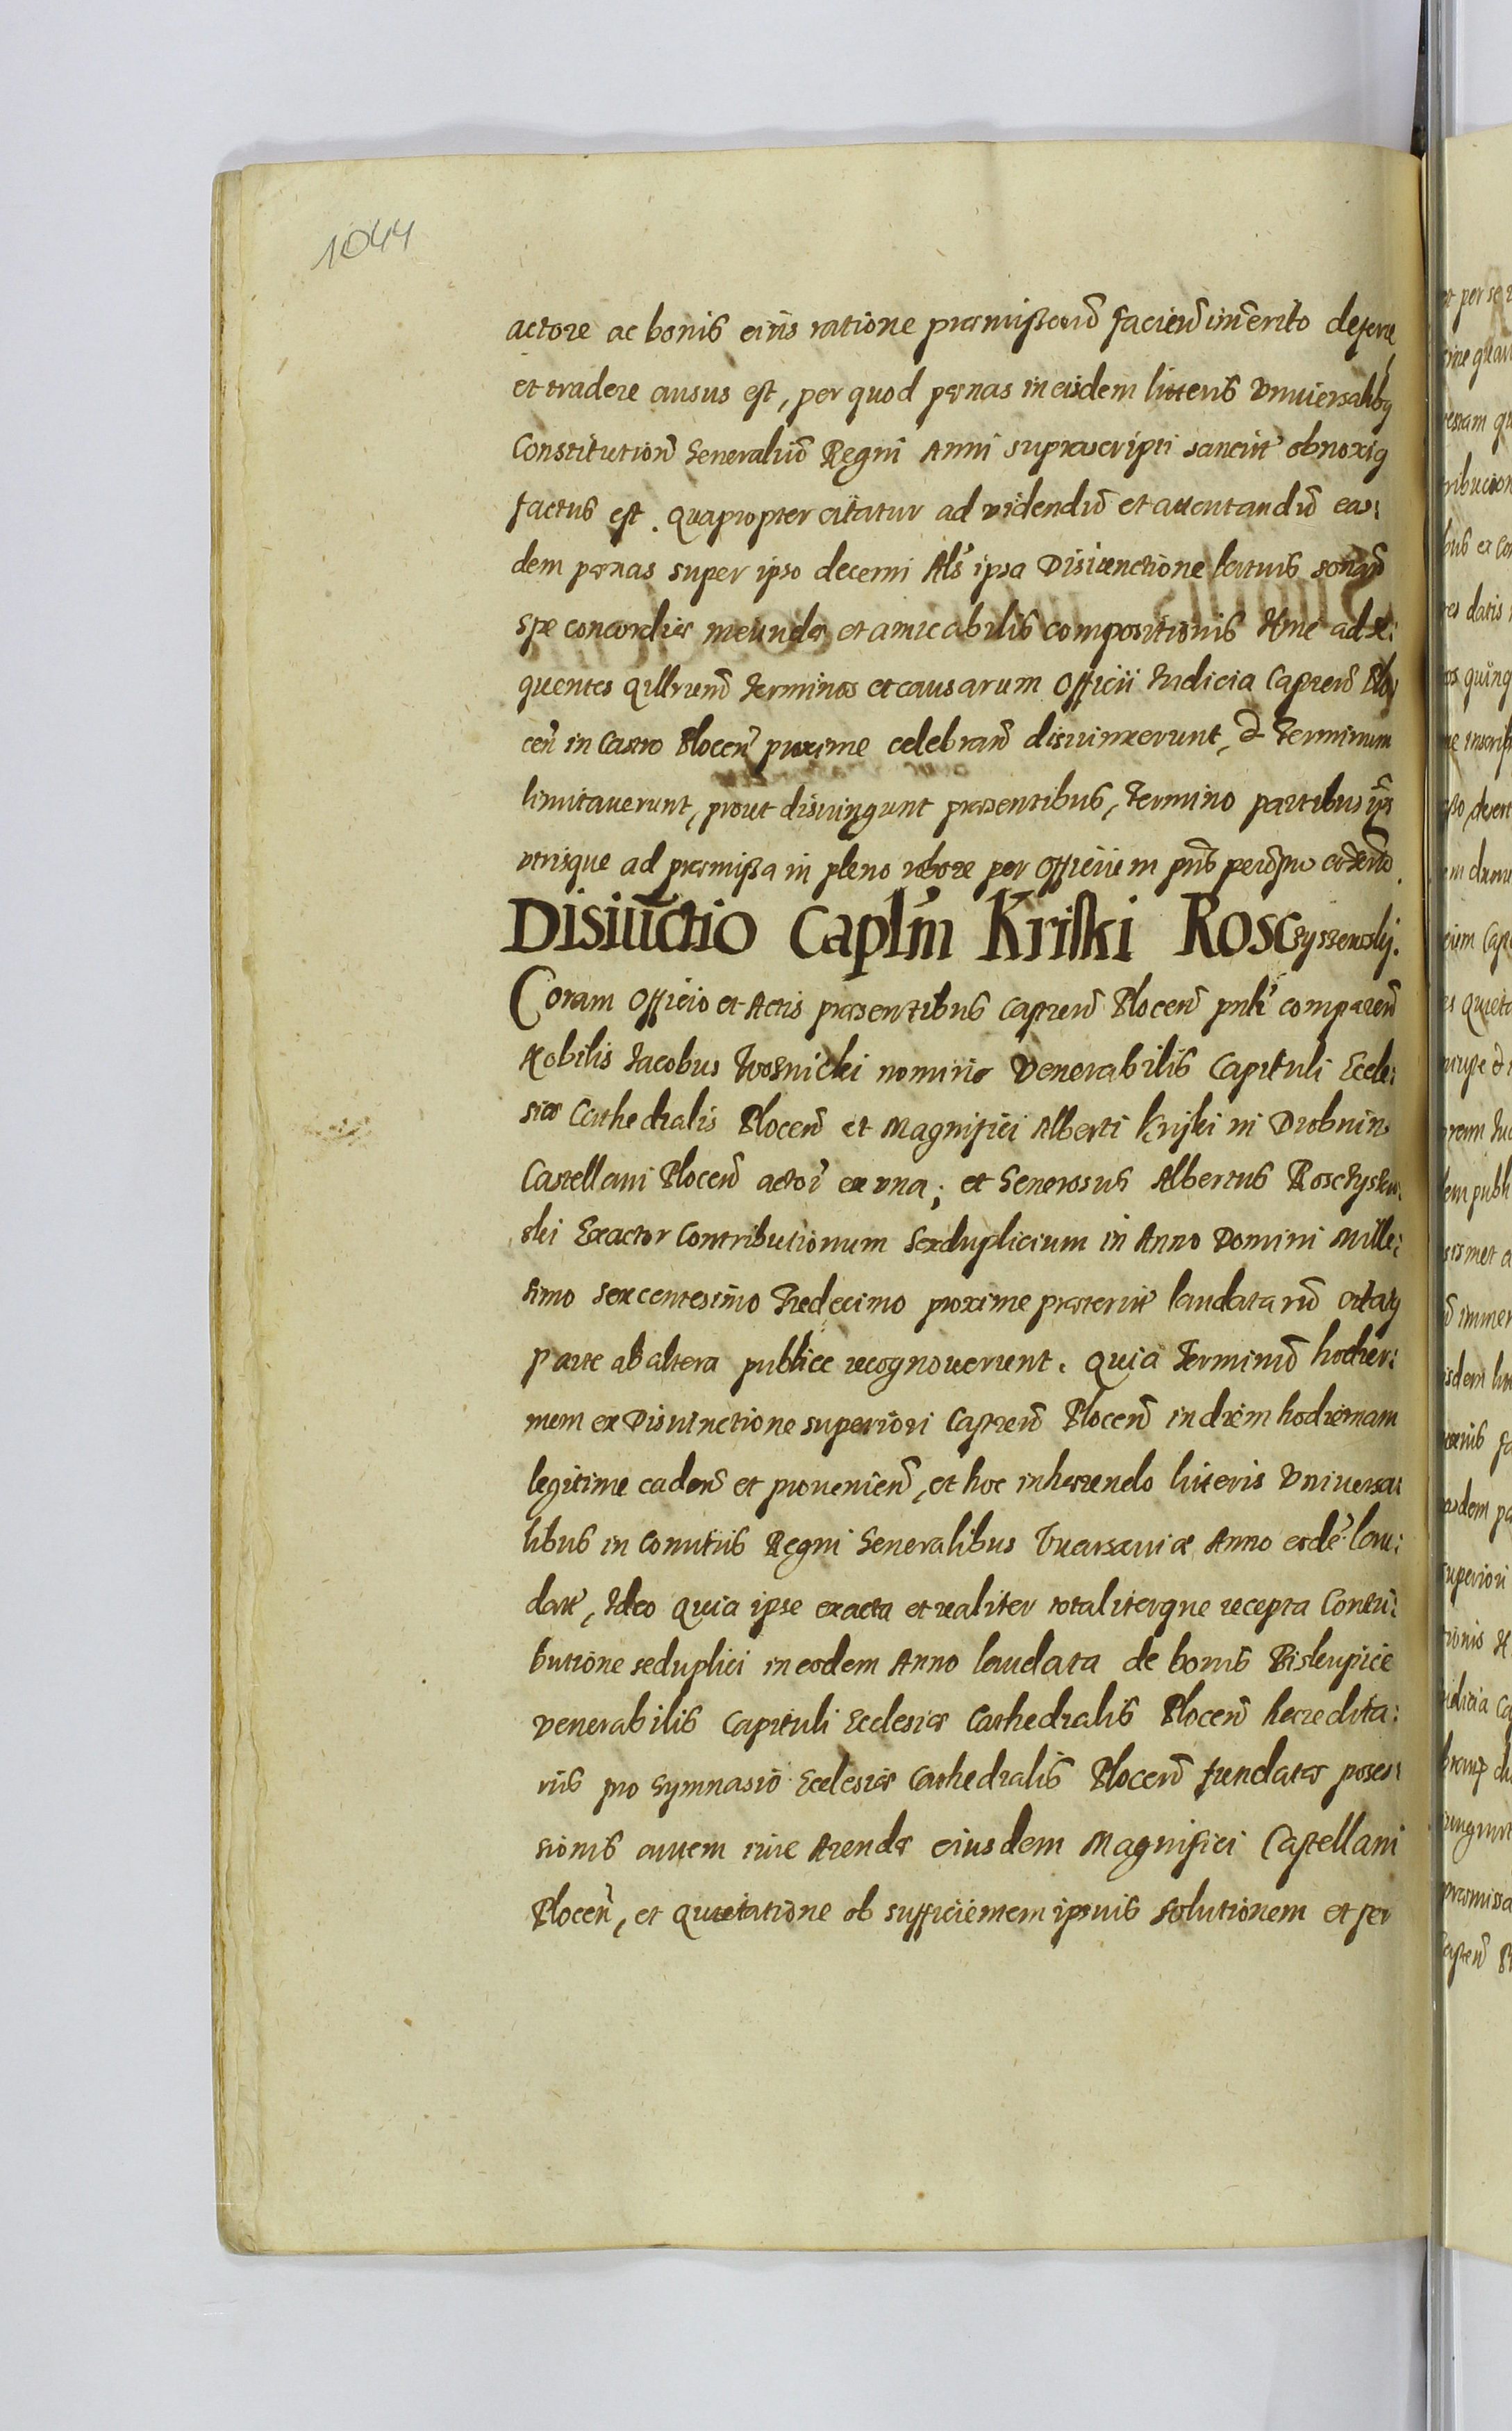 1044
actore ac bonis eius ratione præmissorũ facieñ im̃erito deferre
et tradere ausus est, per quod pœnas in eisdem litteris Vniversalibg
Constitutionũ Generaliũ Regni Anni suprascripti sancit' obnoxig
factus est. Quapropter citatur ad videndũ et attentandũ eas:
dem pœnas super ipso decerni Als ipsa Disiunctione latius sonan̄
spe concordiæ ineundæ et amicabilis compositionis Hinc ad se:
quentes qllrum̃ terminos et causarum Officii Iudicia Capteñ Plo:
ceñ in Castro Ploceñ proxime celebrañ disiunxerunt, & Terminum
limitaverunt, prout disiungunt præsentibus, Termino partibus ip̃is
vtrisque ad præmissa in pleno robore per Officium pñs
Disiũctio Caplm̃ Kriski Rosczyszewskij.
Coram Officio et Actis præsentibus Castreñ Ploceñ pnlr' compareñ
Nobilis Jacobus Woznicki nomine Venerabilis Capituli Eccle:
siæ Cathedralis Ploceñ et Magnifici Alberti Krijski in Drobnin
Castellani Ploceñ actor' ex vna; et Generosus Albertus Rosczyszew:
ski Exactor Contributionum Sexduplicium in Anno Domini Mille:
simo sexcentesimo Tredecimo proxime præterit' laudatarũ citatg
Parte ab altera publice recognoverunt. Quia Terminũ hodier:
num ex Disiunctione superiori Castreñ Ploceñ in diem hodiernam
legitime cadeñ et provenieñ, et hoc inhærendo literis Vniversa:
libus in Comitiis Regni Generalibus Varsaviæ Anno eodẽ lau:
dat', Ideo quia ipse exacta et realiter totaliterque recepta Contri:
butione seduplici in eodem Anno laudata de bonis Biskupice
venerabilis Capituli Ecclesiæ Cathedralis Ploceñ hæredita:
riis pro Gymnasio Ecclesiæ Cathedralis Ploceñ fundatæ poses:
sionis autem sive Arendæ eiusdem Magnifici Castellani
Ploceñ, et quietatione ob sufficientem ipsius solutionem et per